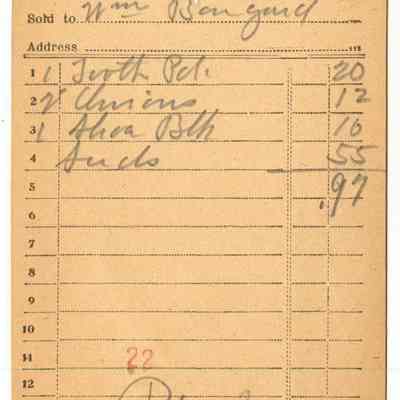 Sold to Wm Bongard
Address
1 1 Tooth Pd. 20
2 2 Onions 12
3 1 Shoe Blk 10
4 55
5 .97
6
7
8
9
10
11 22
12